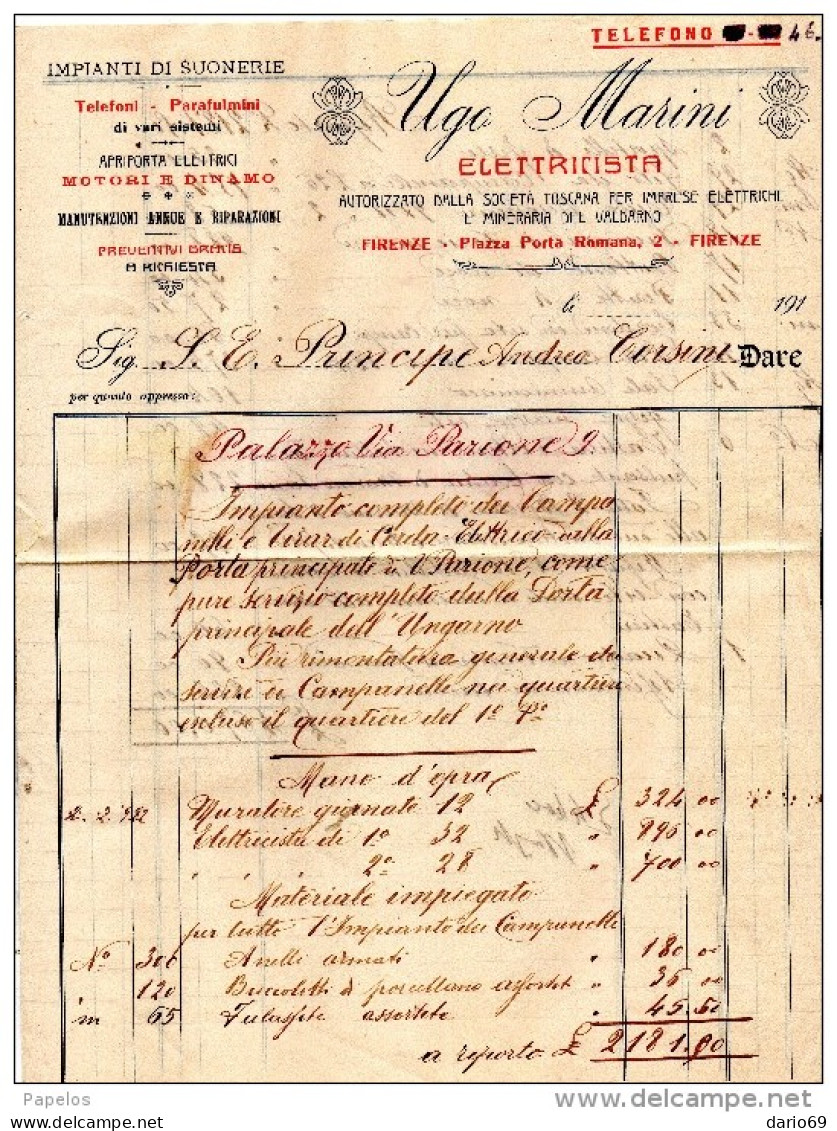 TELEFONO 46.
IMPIANTI DI SUONERIE
Telefoni - Parafulmini
di vari sistemi
APRIPORTA ELETTRICI
MOTORI E DINAMO
MANUTENZIONI ANNUE E RIPARAZIONI
PREVENTIVI GRATIS
A RICHIESTA
Ugo Marini
ELETTRICISTA
AUTORIZZATO DALLA SOCIETÀ TOSCANA PER IMPRESE ELETTRICHE
E MINERARIA DEL VALDARNO
FIRENZE - Piazza Porta Romana, 2 - FIRENZE
li 191
Sig. S. E. Principe Andrea Corsini Dare
per quanto appresso:
Palazzo Via Parione 9.
Impianto completo dei Campa
nelli e Tirar di Corda Elettrico alla
Porta principale di V. Parione, come
pure servizio completo della Porta
principale dell'Ungarno
Più rimontatura generale dei
servizi di Campanelle nei quartieri
escluso il quartiere del 1º Pº
Mano d'opra
2. 2. 922 Muratore giornate 12 £ 324 00
Elettricista di 1º 32 " 896 00
" " 2º 28 " 700 00
Materiale impiegato
per tutto l'Impianto dei Campanelle
Nº 300 Anelli armati " 180 00
120 Buccioletti di porcellana assortiti " 36 00
m 65 assortite " 45.50
a reporto £ 2181.
Papelos
www.delcampe.net
dario69